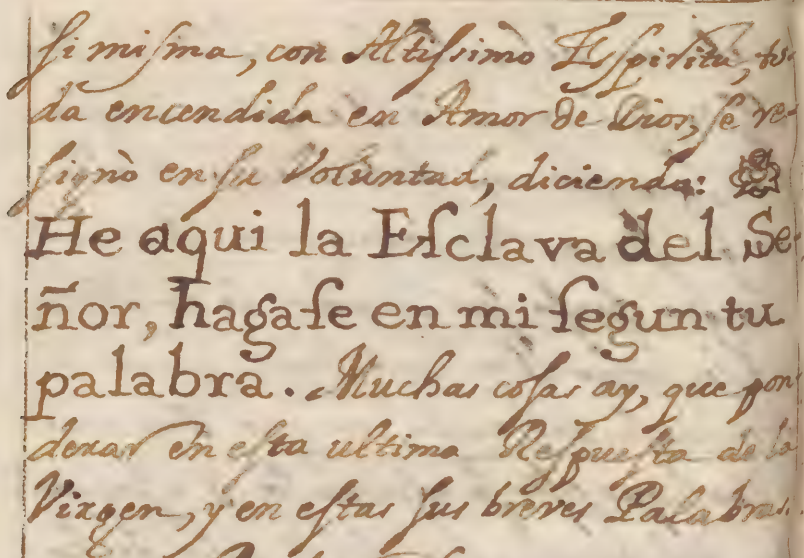 si misma, con Altissimo Espiritu, to-
da encendida en Amor de Dios, se re-
signò en su Voluntad, diciendo:
He aqui la Esclava del Se-
ñor, hagase en mi segun tu
palabra. Muchas cosas ay, que pon-
derar en esta ultima Respuesta de la
Virgen, y en estas sus breves Palabras.